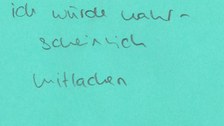 ich würde wahr-
scheinlich
mitlachen